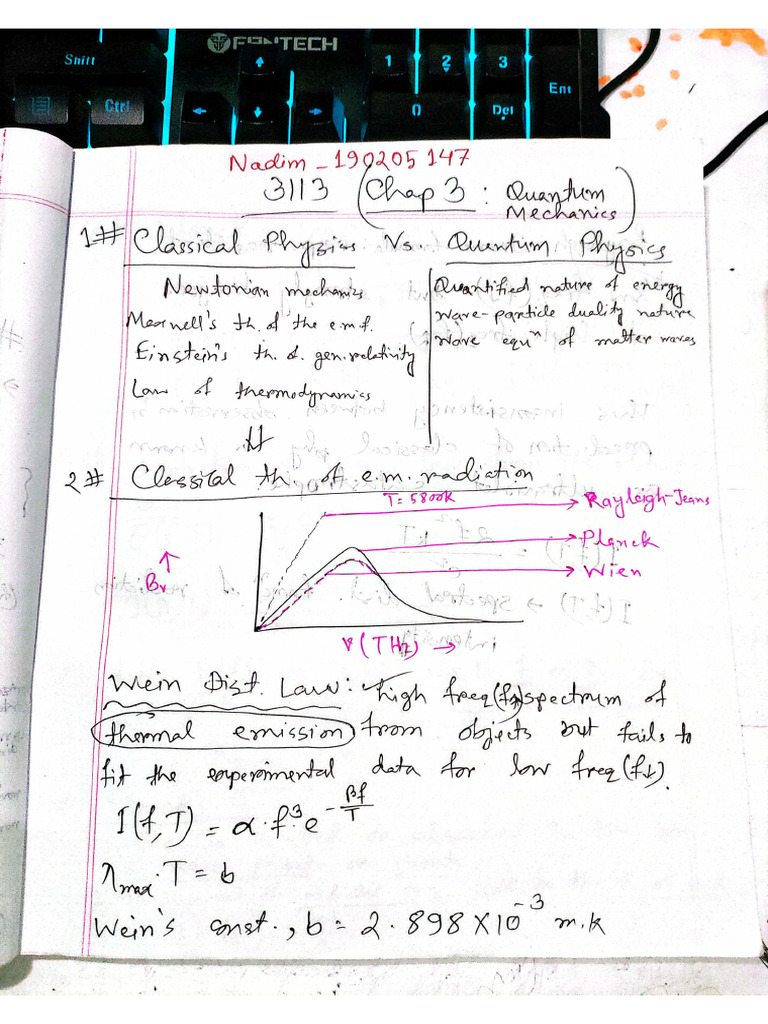 FANTECH
Shift
1 2 3
Ent
Ctrl
0 Del
Nadim - 190205147
3113 (Chap 3 : Quantum
Mechanics)
1# Classical Physics Vs Quantum Physics
Newtonian mechanics
Maxwell's th. of the e.m.f.
Einstein's th. of gen. relativity
Law of thermodynamics
Quantified nature of energy
wave-particle duality nature
wave equⁿ of matter waves
2# Classical th. of e.m. radiation
T = 5800K
Rayleigh-Jeans
Planck
Wien
↑
Bν
ν (THz) →
Wein Dist. Law: high freq(f↑) spectrum of
thermal emission from objects but fails to
fit the experimental data for low freq(f↓).
I(f,T) = α.f³e^(-βf/T)
λmax.T = b
Wein's const., b = 2.898 X 10⁻³ m.k